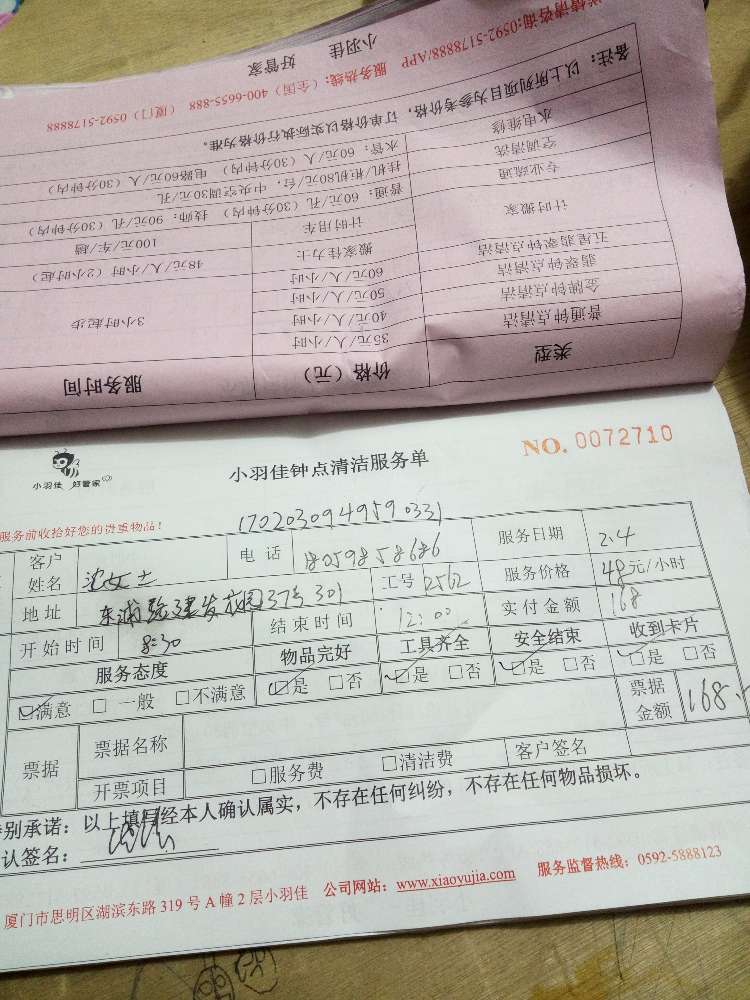 详情请咨询:0592-5178888/APP 服务热线:(全国)400-6655-888 (厦门)0592-5178888
小羽佳 好管家
备注:以上所列项目为参考价格,订单价格以实际执行价格为准。
水电维修 水管:60元/人(30分钟内) 电路60元/人(30分钟内)
空调清洗 挂机/柜机80元/台,中央空调30元/孔
专业疏通 普通:60元/孔(30分钟内) 技师:90元/孔(30分钟内)
计时搬家 计时用车 100元/车/趟
搬家佳力士 48元/人/小时(2小时起)
五星翡翠钟点清洁 60元/人/小时
翡翠钟点清洁 50元/人/小时
金牌钟点清洁 40元/人/小时 3小时起步
普通钟点清洁 35元/人/小时
类型 价格(元) 服务时间
小羽佳 好管家
小羽佳钟点清洁服务单
NO. 0072710
服务前收拾好您的贵重物品!
1702030949590331
客户姓名 沈女士 电话 18059858686 服务日期 2.4
地址 37号301 工号 2562 服务价格 48元/小时
开始时间 8:30 结束时间 12:00 实付金额 168
服务态度 物品完好 工具齐全 安全结束 收到卡片
☑满意 □一般 □不满意 ☑是 □否 ☑是 □否 ☑是 □否 ☑是 □否
票据 票据名称 票据金额 168
开票项目 □服务费 □清洁费 客户签名
别承诺:以上填写经本人确认属实,不存在任何纠纷,不存在任何物品损坏。
认签名:
厦门市思明区湖滨东路319号A幢2层小羽佳 公司网站:www.xiaoyujia.com 服务监督热线:0592-5888123